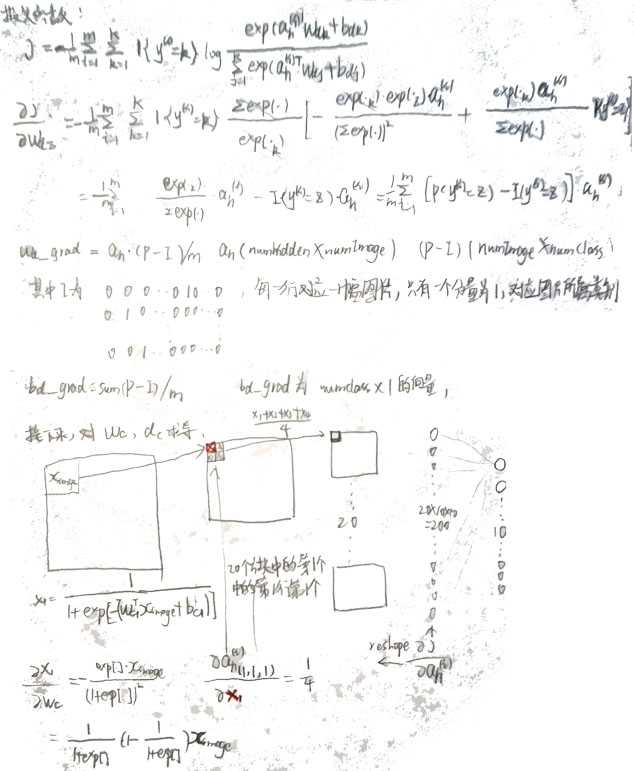 损失函数:
J = -1/m Σ_{i=1}^{m} Σ_{k=1}^{K} 1{y^{(i)}=k} log exp(a_h^{(i)T} W_{dk} + b_{dk}) / Σ_{j=1}^{K} exp(a_h^{(i)T} W_{dj} + b_{dj})
∂J/∂W_{dz} = -1/m Σ_{i=1}^{m} Σ_{k=1}^{K} 1{y^{(i)}=k} Σexp(·)/exp(·_k) [ - exp(·_k)·exp(·_z) a_h^{(i)} / (Σexp(·))² + exp(·_k) a_h^{(i)} / Σexp(·)
= 1/m Σ_{i=1}^{m} exp(·_z)/Σexp(·) a_h^{(i)} - I(y^{(i)}=z)·a_h^{(i)} = 1/m Σ_{i=1}^{m} [P(y^{(i)}=z) - I(y^{(i)}=z)] a_h^{(i)},
Wd_grad = a_h·(P-I)/m a_h(numHidden×numImage) (P-I)(numImage×numclass)
其中I为 0 0 0 ··· 0 1 0 0 , 每一行对应一幅图片,只有一个分量为1,对应图片所属类别
0 1 0 ··· 0 0 0 ··· 0
0 0 1 ··· 0 0 0 ··· 0
bd_grad = sum(P-I)/m bd_grad 为 numclass×1 的向量,
接下来,对 Wc, 求导,
(x₁+x₂+x₃+x₄)/4
x_image
20
20×10×10
10
x₁ = 1 / (1+exp[-(Wc₁ᵀ x_image + bc₁)])
20个块中的第1个
中的第1行第1个
reshape ∂J/∂a_h^{(i)}
∂x₁/∂Wc = exp[]·x_image / (1+exp[])²
∂a_h^{(i)}(1,1,1)/∂x₁ = 1/4
= 1/(1+exp[]) (1 - 1/(1+exp[])) x_image